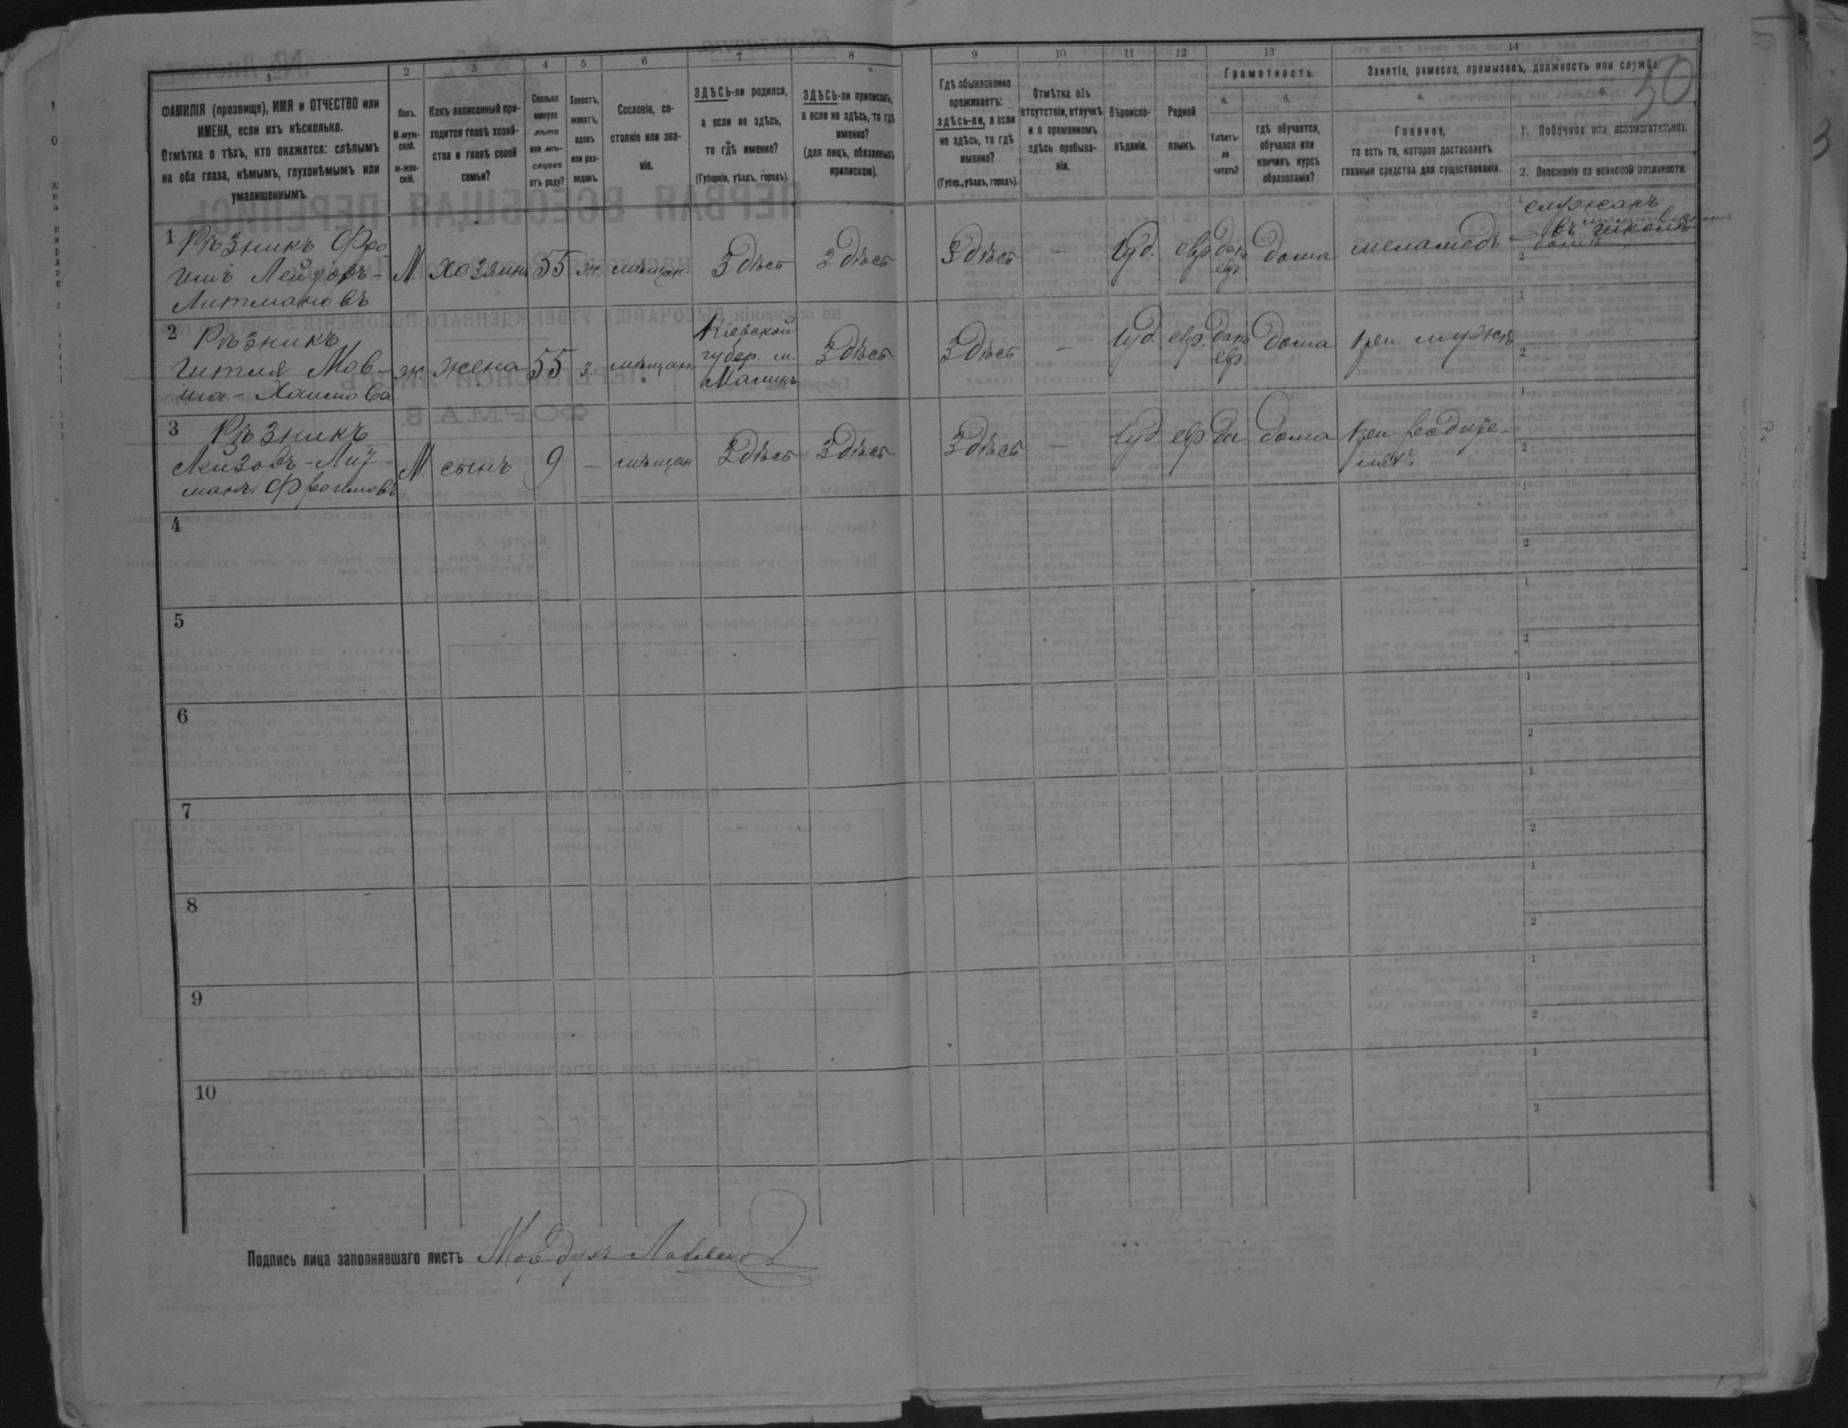 1
2
3
4
5
6
7
8
9
10
11
12
13
14
ФАМИЛІЯ (прозвище), ИМЯ и ОТЧЕСТВО или
ИМЕНА, если ихъ нѣсколько.
Отмѣтка о тѣхъ, кто окажется: слѣпымъ
на оба глаза, нѣмымъ, глухонѣмымъ или
умалишеннымъ.
Полъ.
М-муж-
ской.
Ж-жен-
скій.
Какъ записанный при-
ходится главѣ хозяй-
ства и главѣ своей
семьи?
Сколько
минуло
лѣтъ
или мѣ-
сяцевъ
отъ роду?
Холостъ,
женатъ,
вдовъ
или раз-
веденъ.
Сословіе, со-
стояніе или зва-
ніе.
ЗДѢСЬ-ли родился,
а если не здѣсь,
то гдѣ именно?
(Губернія, уѣздъ, городъ).
ЗДѢСЬ-ли приписанъ,
а если не здѣсь, то гдѣ
именно?
(для лицъ, обязанныхъ
припискою).
Гдѣ обыкновенно
проживаетъ:
здѣсь-ли, а если
не здѣсь, то гдѣ
именно?
(Губер., уѣздъ, городъ).
Отмѣтка объ
отсутствіи, отлучкѣ
и о временномъ
здѣсь пребыва-
ніи.
Вѣроиспо-
вѣданіе.
Родной
языкъ.
Грамотность.
а.
б.
Умѣетъ-
ли
читать?
Гдѣ обучается,
обучался или
кончилъ курсъ
образованія?
Занятіе, ремесло, промыселъ, должность или служба.
а.
б.
50
Главное,
то есть то, которое доставляетъ
главныя средства для существованія.
1. Побочное или вспомогательное.
2. Положеніе по воинской повинности.
1 Рѣзникъ Фро
имъ Лейзоръ-
Литмановъ
М. хозяинъ 55 ж. мѣщан. Здѣсь Здѣсь Здѣсь — Іуд. евр. да евр. дома меламедъ
2 Рѣзникъ
Гитля Мов-
ша-Хаимова
ж. жена 55 з. мѣщан.
Кіевской
губер. м.
Малинъ
Здѣсь Здѣсь — Іуд. евр. да евр. дома при мужѣ
3 Рѣзникъ
Лейзоръ-Лит-
манъ Фроимовъ
М. сынъ 9 — мѣщан. Здѣсь Здѣсь Здѣсь — Іуд. евр. да дома при родите-
ляхъ
4
5
6
7
8
9
10
Подпись лица заполнявшаго листъ Мордухъ